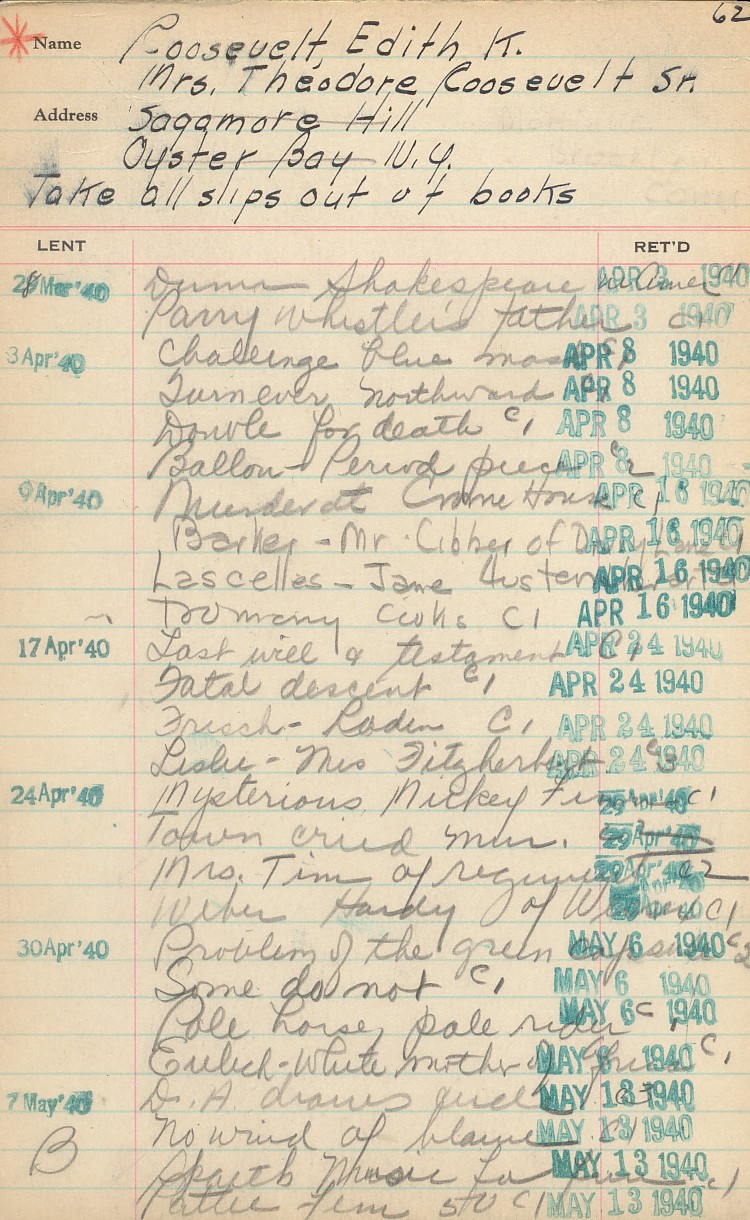 62
Name Roosevelt, Edith K.
Mrs. Theodore Roosevelt Sr.
Address Sagamore Hill
Oyster Bay N.Y.
Take all slips out of books
LENT RET'D
28 Mar '40 Shakespeare in Amer C1 APR 3 1940
Parry Whistler's father C1 APR 3 1940
3 Apr '40 Challenge blue mask C1 APR 8 1940
Turnever Northward C1 APR 8 1940
Double for death C1 APR 8 1940
Ballon - Period piece C2 APR 8 1940
9 Apr '40 Murder at Crome House C1 APR 16 1940
Barker - Mr. Cibber of Drury Lane C1 APR 16 1940
Lascelles - Jane Austen APR 16 1940
Too many cooks C1 APR 16 1940
17 Apr '40 Last will & testament C1 APR 24 1940
Fatal descent C1 APR 24 1940
Frisch - Loden C1 APR 24 1940
Leslie - Mrs Fitzherbert C3 APR 24 1940
24 Apr '40 Mysterious Mickey Finn C1 29 Apr '40
Town cried mur. C2 29 Apr '40
Mrs. Tim of regiment C2 29 Apr '40
Weber Hardy of Wessex C1 Apr '40
30 Apr '40 Problem of the green capsule C2 MAY 6 1940
Some do not C1 MAY 6 1940
Pale horse, pale rider C1 MAY 6 1940
White mother of C1 MAY 6 1940
7 May '40 Dr. A. MAY 13 1940
No wind of blame C1 MAY 13 1940
B
Music C1 MAY 13 1940
C1 MAY 13 1940